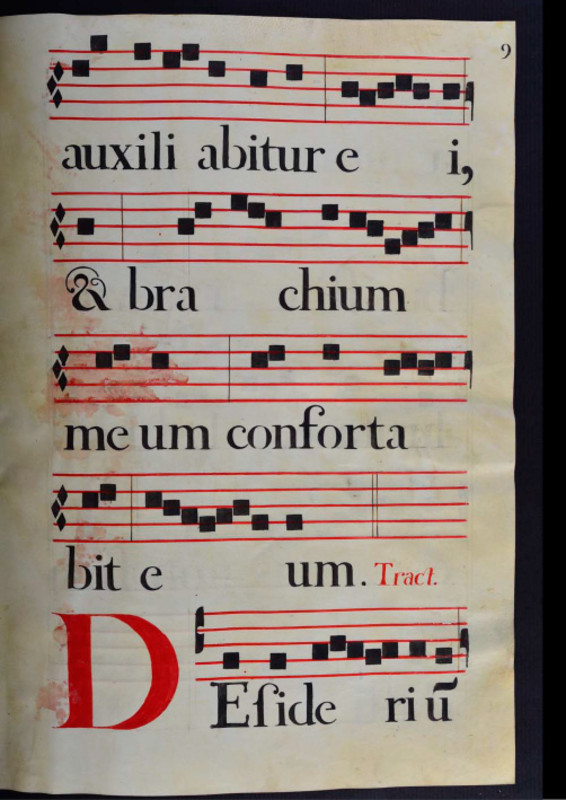 9
auxili abitur e i,
& bra chium
me um conforta
bit e um. Tract.
DEſide riū